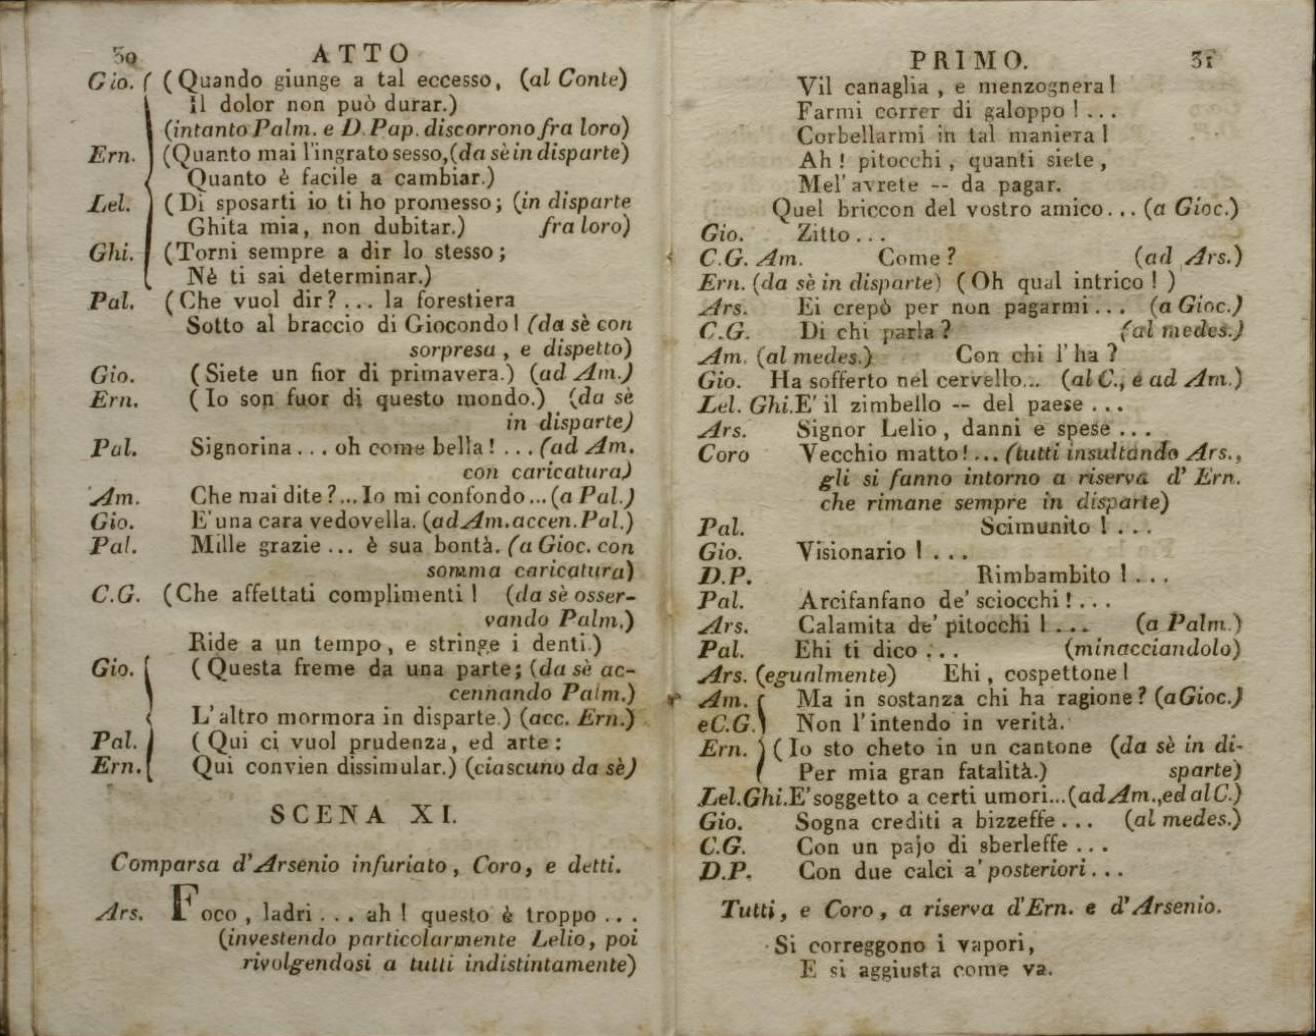 30 ATTO
Gio. ( (Quando giunge a tal eccesso, (al Conte)
Il dolor non può durar.)
(intanto Palm. e D. Pap. discorrono fra loro)
Ern. (Quanto mai l'ingrato sesso, (da sè in disparte)
Quanto è facile a cambiar.)
Lel. (Di sposarti io ti ho promesso; (in disparte
Ghita mia, non dubitar.) fra loro)
Ghi. (Torni sempre a dir lo stesso;
Nè ti sai determinar.)
Pal. (Che vuol dir?... la forestiera
Sotto al braccio di Giocondo! (da sè con
sorpresa, e dispetto)
Gio. (Siete un fior di primavera.) (ad Am.)
Ern. (Io son fuor di questo mondo.) (da sè
in disparte)
Pal. Signorina... oh come bella!... (ad Am.
con caricatura)
Am. Che mai dite?... Io mi confondo... (a Pal.)
Gio. E' una cara vedovella. (ad Am. accen. Pal.)
Pal. Mille grazie... è sua bontà. (a Gioc. con
somma caricatura)
C.G. (Che affettati complimenti! (da sè osser-
vando Palm.)
Ride a un tempo, e stringe i denti.)
Gio. (Questa freme da una parte; (da sè ac-
cennando Palm.)
L'altro mormora in disparte.) (acc. Ern.)
Pal. (Qui ci vuol prudenza, ed arte:
Ern. Qui convien dissimular.) (ciascuno da sè)
SCENA XI.
Comparsa d'Arsenio infuriato, Coro, e detti.
Ars. Foco, ladri... ah! questo è troppo...
(investendo particolarmente Lelio, poi
rivolgendosi a tutti indistintamente)
PRIMO. 31
Vil canaglia, e menzognera!
Farmi correr di galoppo!...
Corbellarmi in tal maniera!
Ah! pitocchi, quanti siete,
Mel' avrete -- da pagar.
Quel briccon del vostro amico... (a Gioc.)
Gio. Zitto...
C.G. Am. Come? (ad Ars.)
Ern. (da sè in disparte) (Oh qual intrico!)
Ars. Ei crepò per non pagarmi... (a Gioc.)
C.G. Di chi parla? (al medes.)
Am. (al medes.) Con chi l'ha?
Gio. Ha sofferto nel cervello... (al C., e ad Am.)
Lel. Ghi. E' il zimbello -- del paese...
Ars. Signor Lelio, danni e spese...
Coro Vecchio matto!... (tutti insultando Ars.,
gli si fanno intorno a riserva d' Ern.
che rimane sempre in disparte)
Pal. Scimunito!...
Gio. Visionario!...
D.P. Rimbambito!...
Pal. Arcifanfano de' sciocchi!...
Ars. Calamita de' pitocchi!... (a Palm.)
Pal. Ehi ti dico... (minacciandolo)
Ars. (egualmente) Ehi, cospettone!
Am. Ma in sostanza chi ha ragione? (a Gioc.)
e C.G. Non l'intendo in verità.
Ern. (Io sto cheto in un cantone (da sè in di-
Per mia gran fatalità.) sparte)
Lel. Ghi. E' soggetto a certi umori... (ad Am., ed al C.)
Gio. Sogna crediti a bizzeffe... (al medes.)
C.G. Con un pajo di sberleffe...
D.P. Con due calci a' posteriori...
Tutti, e Coro, a riserva d'Ern. e d'Arsenio.
Si correggono i vapori,
E si aggiusta come va.